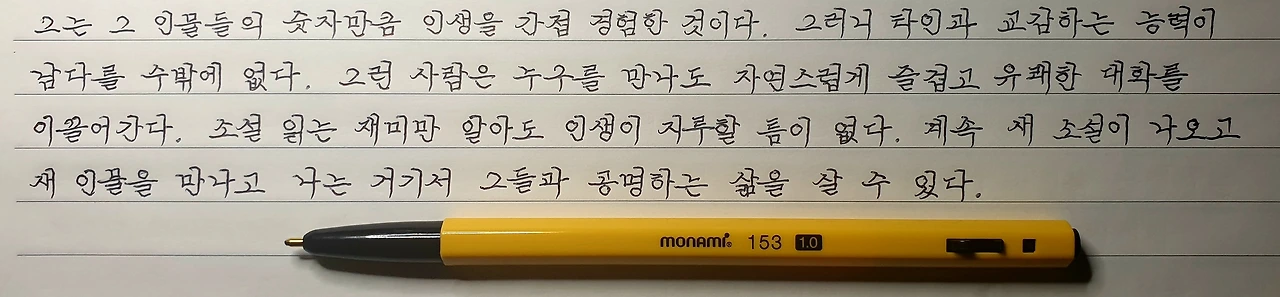 그는 그 인물들의 숫자만큼 인생을 간접 경험한 것이다. 그러니 타인과 교감하는 능력이
남다를 수밖에 없다. 그런 사람은 누구를 만나도 자연스럽게 즐겁고 유쾌한 대화를
이끌어간다. 소설 읽는 재미만 알아도 인생이 지루할 틈이 없다. 계속 새 소설이 나오고
새 인물을 만나고 나는 거기서 그들과 공명하는 삶을 살 수 있다.
monami® 153 1.0